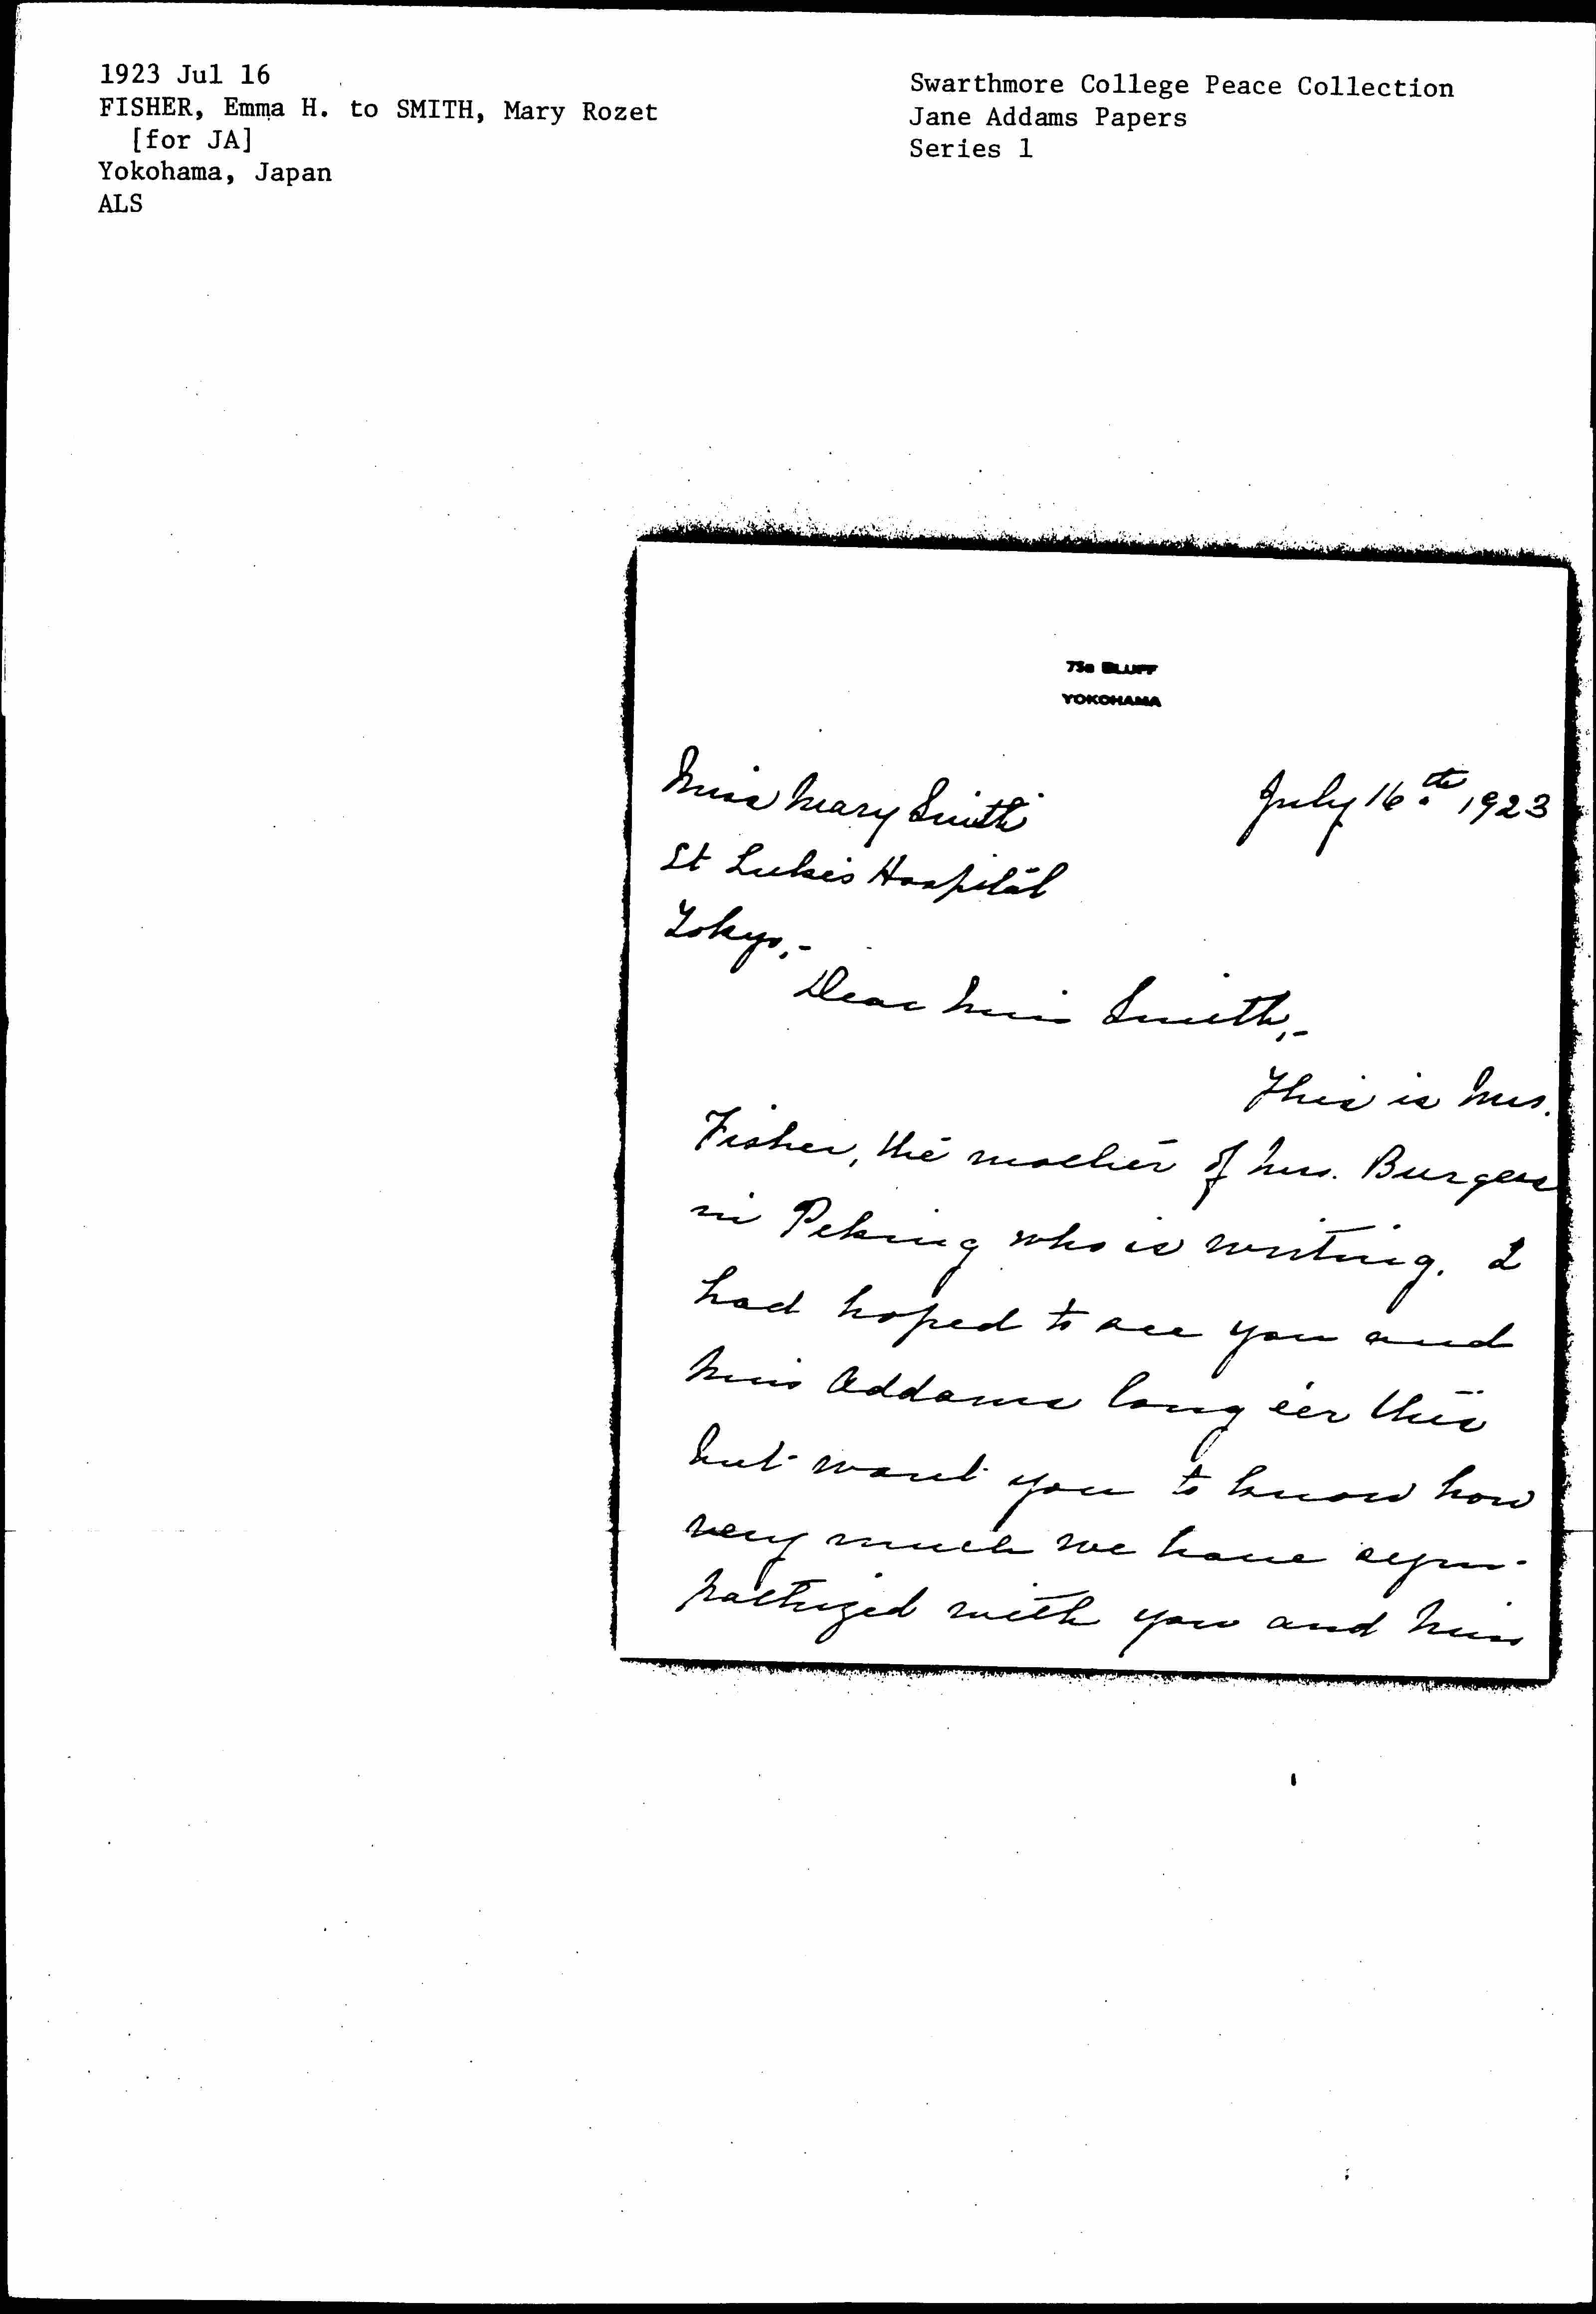 1923 Jul 16
FISHER, Emma H. to SMITH, Mary Rozet
[for JA]
Yokohama, Japan
ALS
Swarthmore College Peace Collection
Jane Addams Papers
Series 1
75a BLUFF
YOKOHAMA
July 16th 1923
Miss Mary Smith
St Luke's Hospital
Tokyo,-
Dear Miss Smith,-
This is Mrs.
Fisher, the mother of Mrs. Burgess
in Peking who is writing. I
had hoped to see you and
Miss Addams long e'er this
but want you to know how
very much we have sym-
pathized with you and Miss